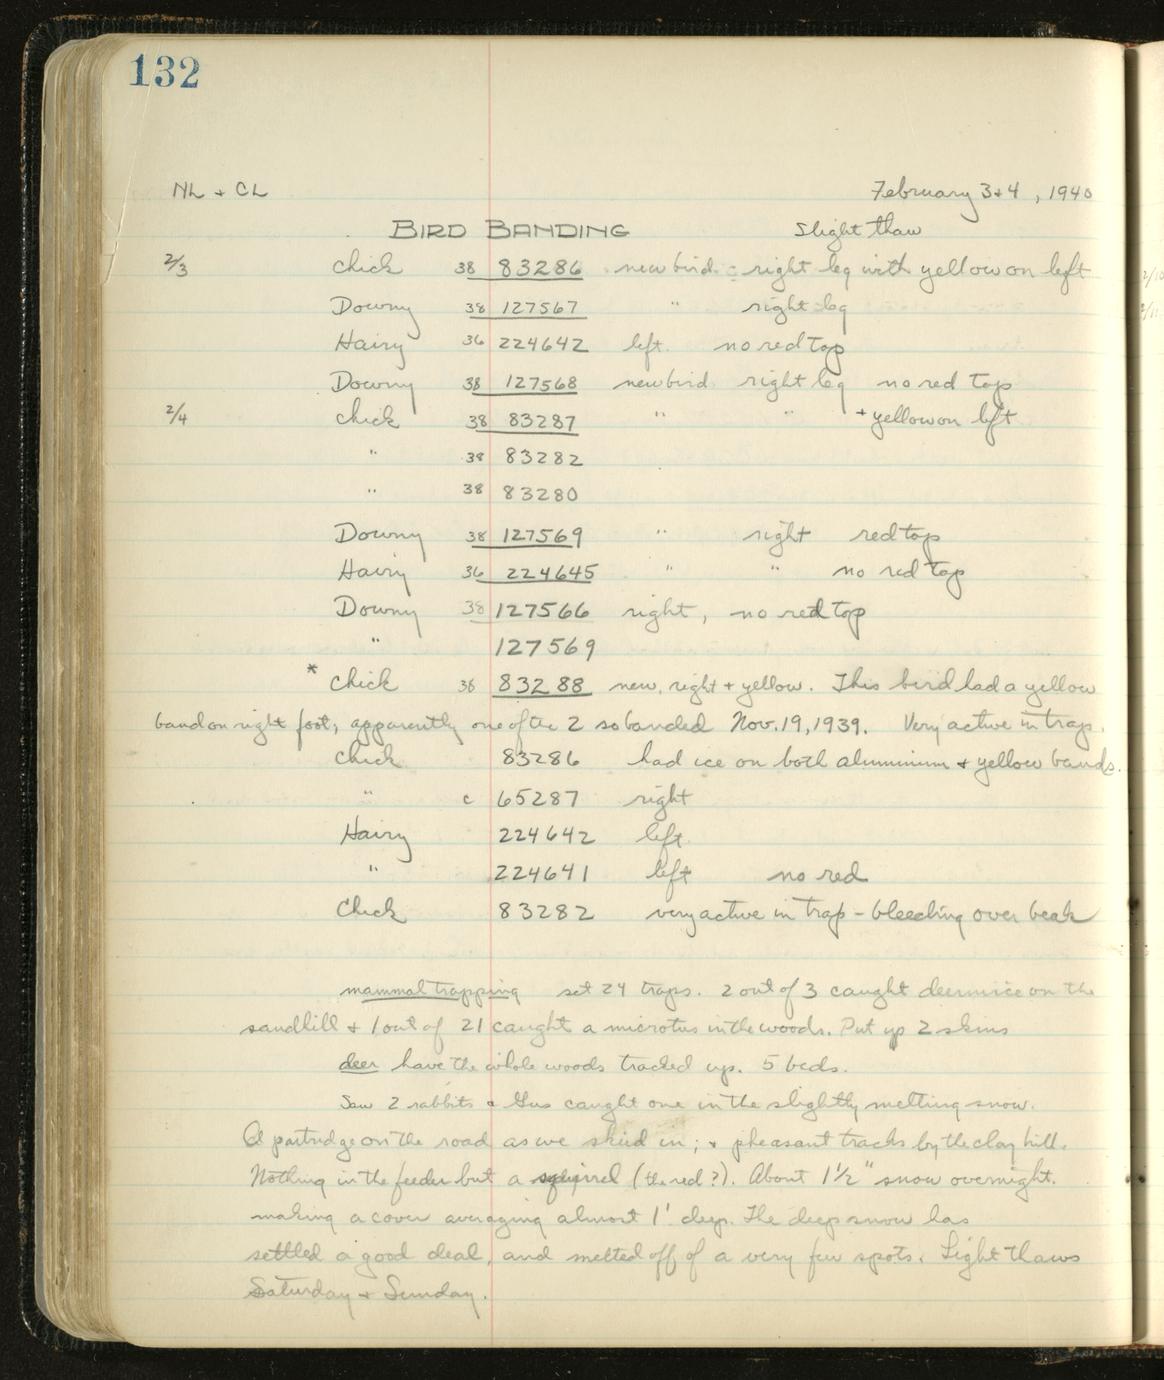 132
NL + CL February 3+4, 1940
BIRD BANDING Slight thaw
2/3 Chick 38 83286 new bird - right leg with yellow on left
Downy 38 127567 " right leg
Hairy 36 224642 left. no red top
Downy 38 127568 new bird right leg no red top
2/4 Chick 38 83287 " " + yellow on left
" 38 83282
" 38 83280
Downy 38 127569 " right red top
Hairy 36 224645 " " no red top
Downy 38 127566 right, no red top
" 127569
* Chick 38 83288 new, right + yellow. This bird had a yellow
band on right foot, apparently one of the 2 so banded Nov. 19, 1939. Very active in trap.
Chick 83286 had ice on both aluminum + yellow bands.
" c 65287 right
Hairy 224642 left
" 224641 left no red
Chick 83282 very active in trap - bleeding over beak
mammal trapping set 24 traps. 2 out of 3 caught deermice on the
sandhill + 1 out of 21 caught a microtus in the woods. Put up 2 skins
deer have the whole woods tracked up. 5 beds.
Saw 2 rabbits + Gus caught one in the slightly melting snow.
A partridge on the road as we skied in; + pheasant tracks by the clay hill.
Nothing in the feeder but a squirrel (the red?). About 1 1/2" snow overnight.
making a cover averaging almost 1' deep. The deep snow has
settled a good deal, and melted off of a very few spots. Light thaws
Saturday + Sunday.
2/10
2/11